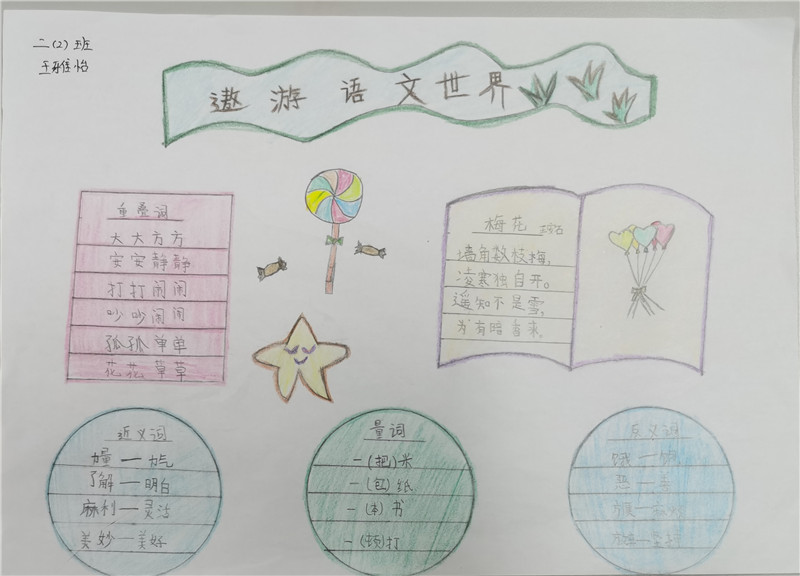 二(2)班
王雅怡
遨游语文世界
重叠词
大大方方
安安静静
打打闹闹
吵吵闹闹
孤孤单单
花花草草
梅花 王安石
墙角数枝梅,
凌寒独自开。
遥知不是雪,
为有暗香来。
近义词
力量一力气
了解一明白
麻利一灵活
美妙一美好
量词
一(把)米
一(包)纸
一(本)书
一(顿)打
反义词